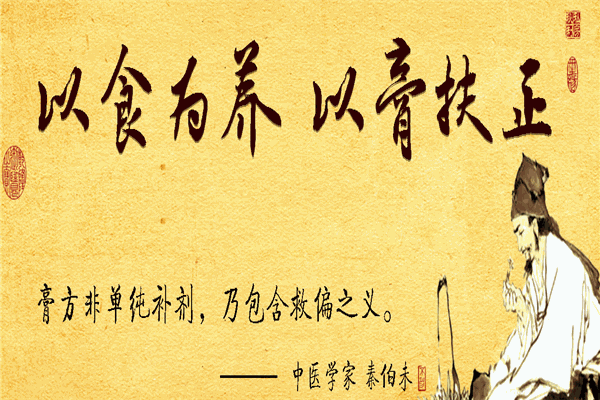 以食为养 以膏扶正
膏方非单纯补剂，乃包含救偏之义。
—— 中医学家 秦伯未